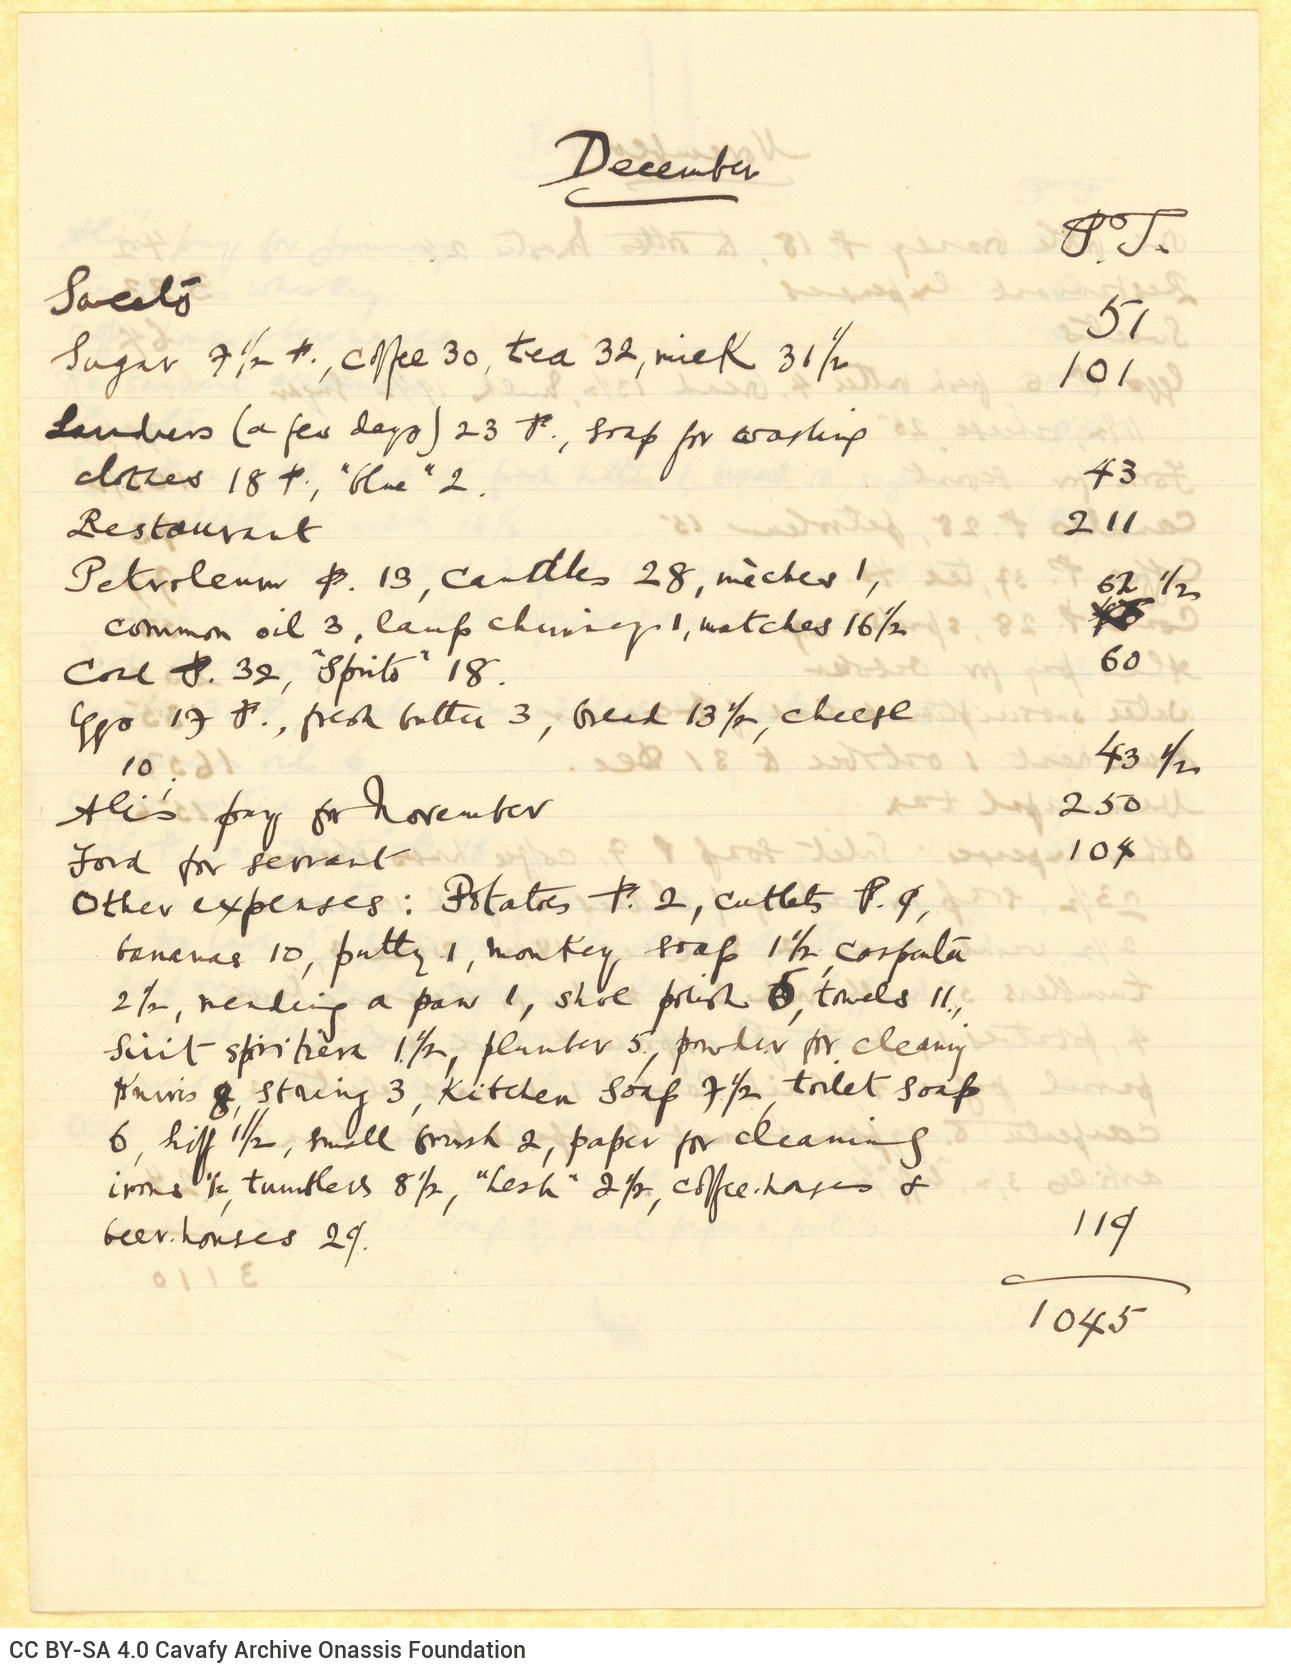 December
P.T.
Sweets 51
Sugar 7 1/2 P., coffee 30, tea 32, milk 31 1/2 101
Sundries (a few days) 23 P., soap for washing
clothes 18 P., "blue" 2. 43
Restaurant 211
Petroleum P. 13, candles 28, mèches 1, 62 1/2
common oil 3, lamp chimney 1, matches 16 1/2
Coal P. 32, "Spirito" 18. 60
Eggs 17 P., fresh butter 3, bread 13 1/2, cheese
10. 43 1/2
Ali's pay for November 250
Food for servant 104
Other expenses: Potatoes P. 2, cutlets P. 9,
bananas 10, putty 1, monkey soap 1 1/2,
2 1/2, mending a pan 1, shoe polish 6, towels 11,
spiritiera 1 1/2, plumber 5, powder for cleaning
knives 8, string 3, kitchen soap 7 1/2, toilet soap
6, 1 1/2, small brush 2, paper for cleaning
irons 1/2, tumblers 8 1/2, 2 1/2, coffee-houses &
beer-houses 29. 119
1045
CC BY-SA 4.0 Cavafy Archive Onassis Foundation